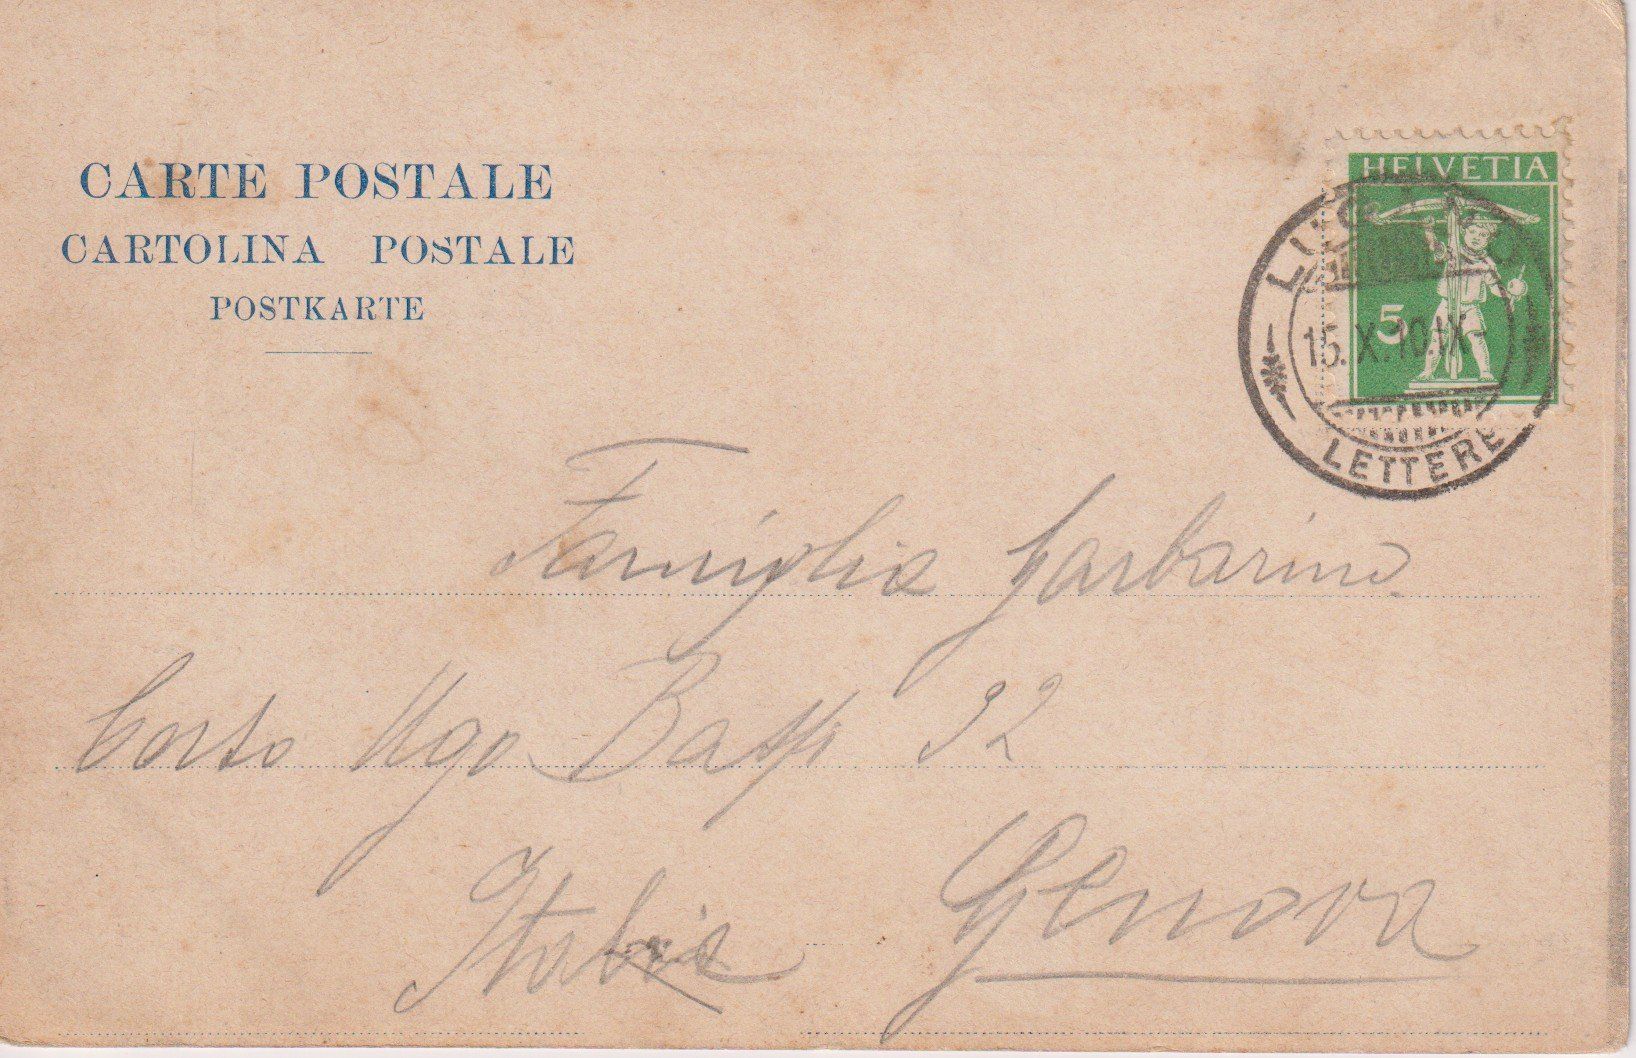 CARTE POSTALE
CARTOLINA POSTALE
POSTKARTE
HELVETIA
5
LUGANO
15.X.10.IX
LETTERE
Famiglia Garbarino
Corso Ugo Bassi 32
Italia Genova